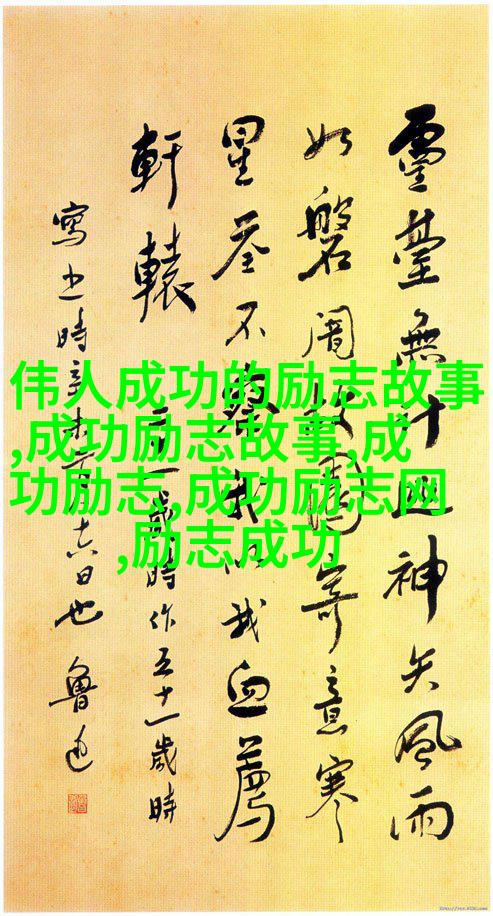 靈臺無計逃神矢風雨
如磐闇故園寄意寒
星荃不察我以我血薦
軒轅
二十一歲時作五十一歲時
寫之時辛未二月十六日也 魯迅
伟人成功的励志故事
,成功励志故事,成
功励志,成功励志网
,励志成功